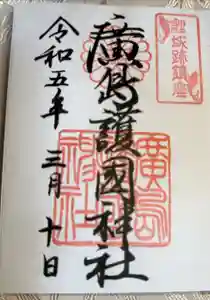 鯉城跡鎮座
廣島護國神社
廣島
神社
令和五年三月十日